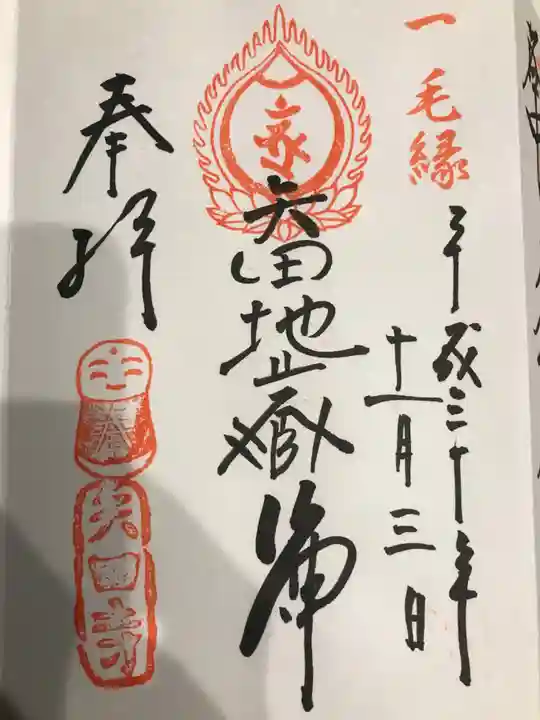 一毛縁
平成三十年
十一月三日
矢田地蔵尊
奉拝
矢田寺